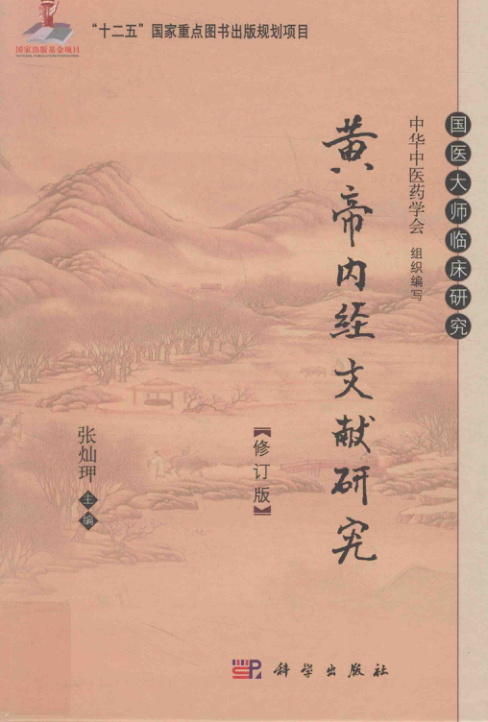 国家出版基金项目
“十二五”国家重点图书出版规划项目
国医大师临床研究
中华中医药学会 组织编写
黄帝内经文献研究
【修订版】
张灿玾 主编
科学出版社